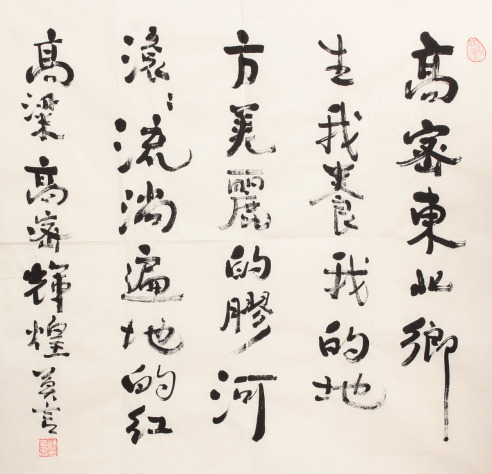 高密東北鄉
生我養我的地
方美麗的膠河
滾〻流淌遍地的紅
高粱高密輝煌莫言